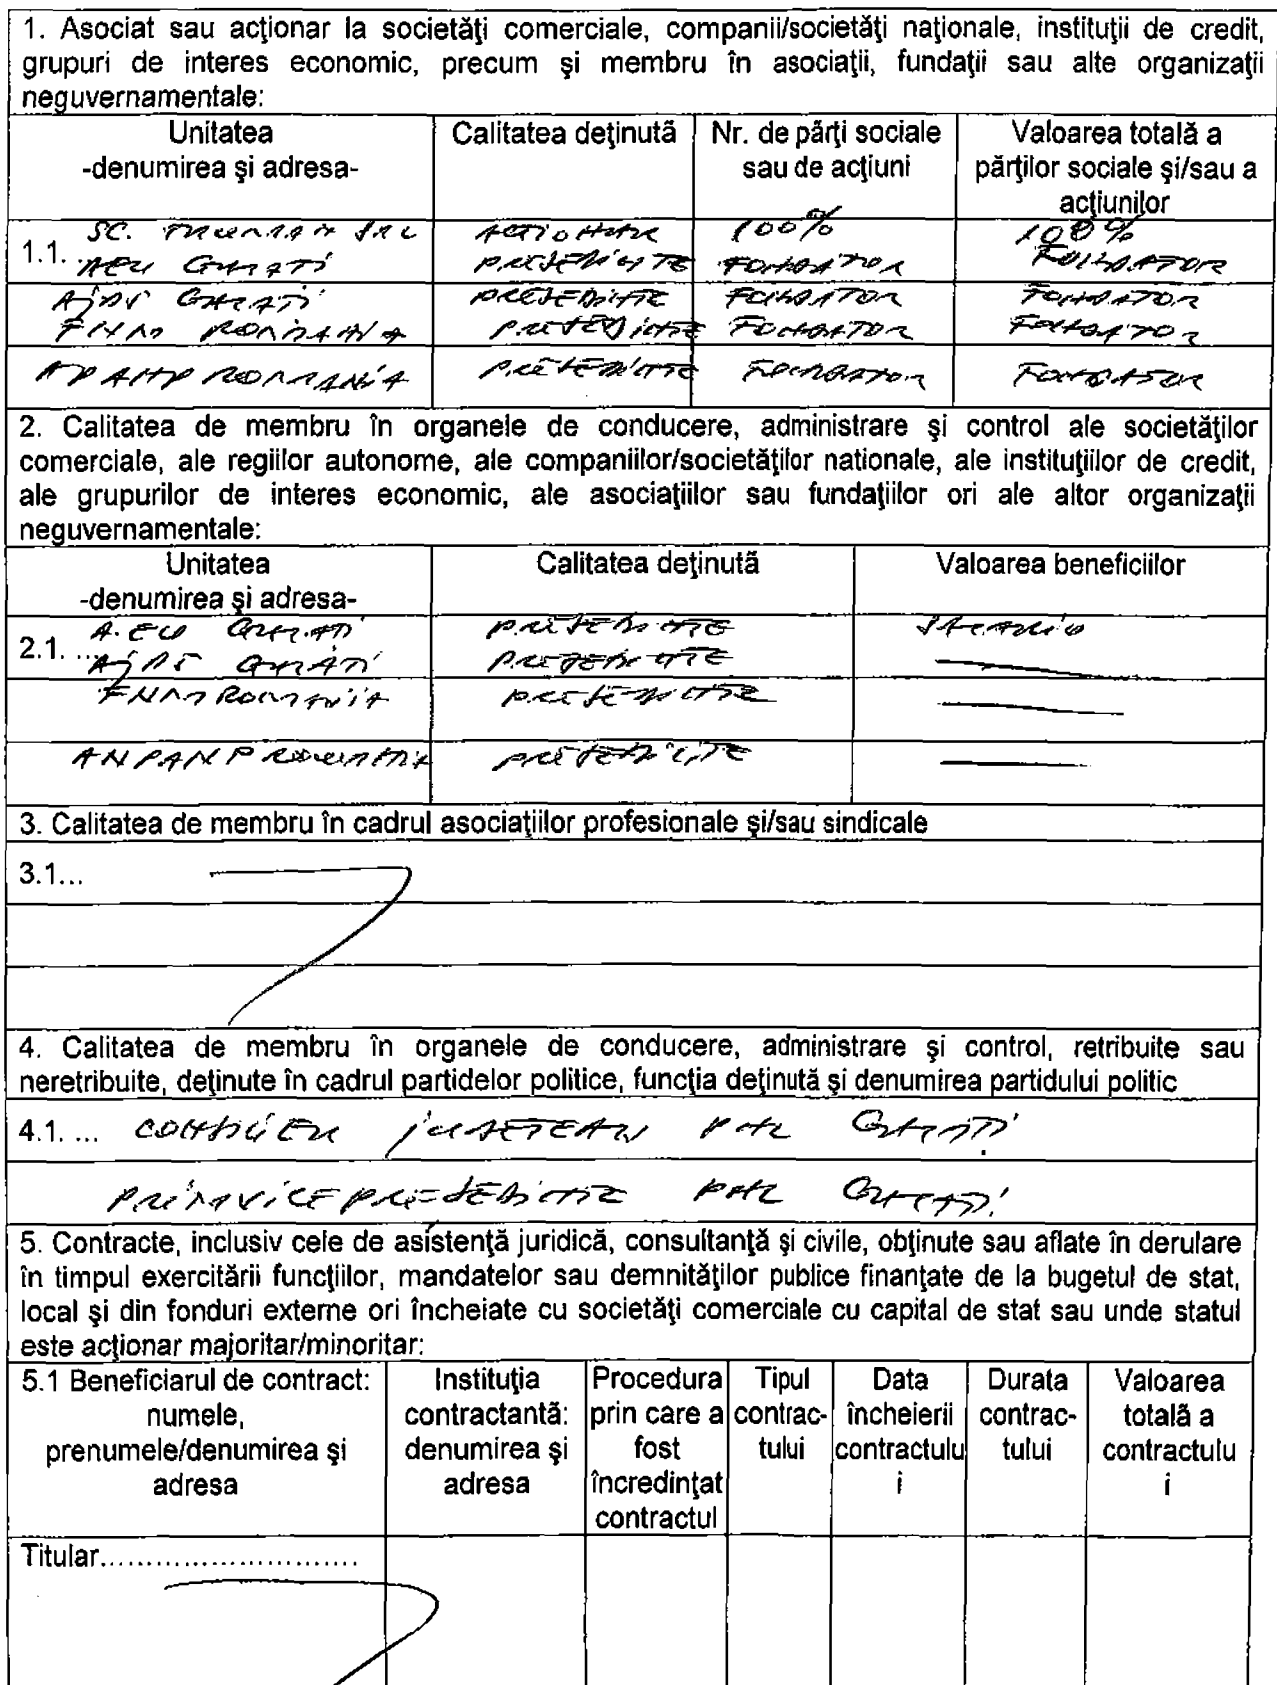 1. Asociat sau acţionar la societăţi comerciale, companii/societăţi naţionale, instituţii de credit,
grupuri de interes economic, precum şi membru în asociaţii, fundaţii sau alte organizaţii
neguvernamentale:
Unitatea
-denumirea şi adresa-
Calitatea deţinută
Nr. de părţi sociale
sau de acţiuni
Valoarea totală a
părţilor sociale şi/sau a
acţiunilor
SC. SRL ACTIONAR 100% 100%
1.1. GALATI PRESEDINTE FONDATOR FONDATOR
GALATI PRESEDINTE FONDATOR FONDATOR
ROMANIA PRESEDINTE FONDATOR FONDATOR
ROMANIA PRESEDINTE FONDATOR FONDATOR
2. Calitatea de membru în organele de conducere, administrare şi control ale societăţilor
comerciale, ale regiilor autonome, ale companiilor/societăţilor nationale, ale instituţiilor de credit,
ale grupurilor de interes economic, ale asociaţiilor sau fundaţiilor ori ale altor organizaţii
neguvernamentale:
Unitatea
-denumirea şi adresa-
Calitatea deţinută
Valoarea beneficiilor
GALATI PRESEDINTE SALARIU
2.1. ... GALATI PRESEDINTE
ROMANIA PRESEDINTE
ANPANP ROMANIA PRESEDINTE
3. Calitatea de membru în cadrul asociaţiilor profesionale şi/sau sindicale
3.1...
4. Calitatea de membru în organele de conducere, administrare şi control, retribuite sau
neretribuite, deţinute în cadrul partidelor politice, funcţia deţinută şi denumirea partidului politic
4.1. ... CONSILIER JUDETEAN PNL GALATI
PRIMVICEPRESEDINTE PNL GALATI
5. Contracte, inclusiv cele de asistenţă juridică, consultanţă şi civile, obţinute sau aflate în derulare
în timpul exercitării funcţiilor, mandatelor sau demnităţilor publice finanţate de la bugetul de stat,
local şi din fonduri externe ori încheiate cu societăţi comerciale cu capital de stat sau unde statul
este acţionar majoritar/minoritar:
5.1 Beneficiarul de contract:
numele,
prenumele/denumirea şi
adresa
Instituţia
contractantă:
denumirea şi
adresa
Procedura
prin care a
fost
încredinţat
contractul
Tipul
contrac-
tului
Data
încheierii
contractulu
i
Durata
contrac-
tului
Valoarea
totală a
contractulu
i
Titular............................